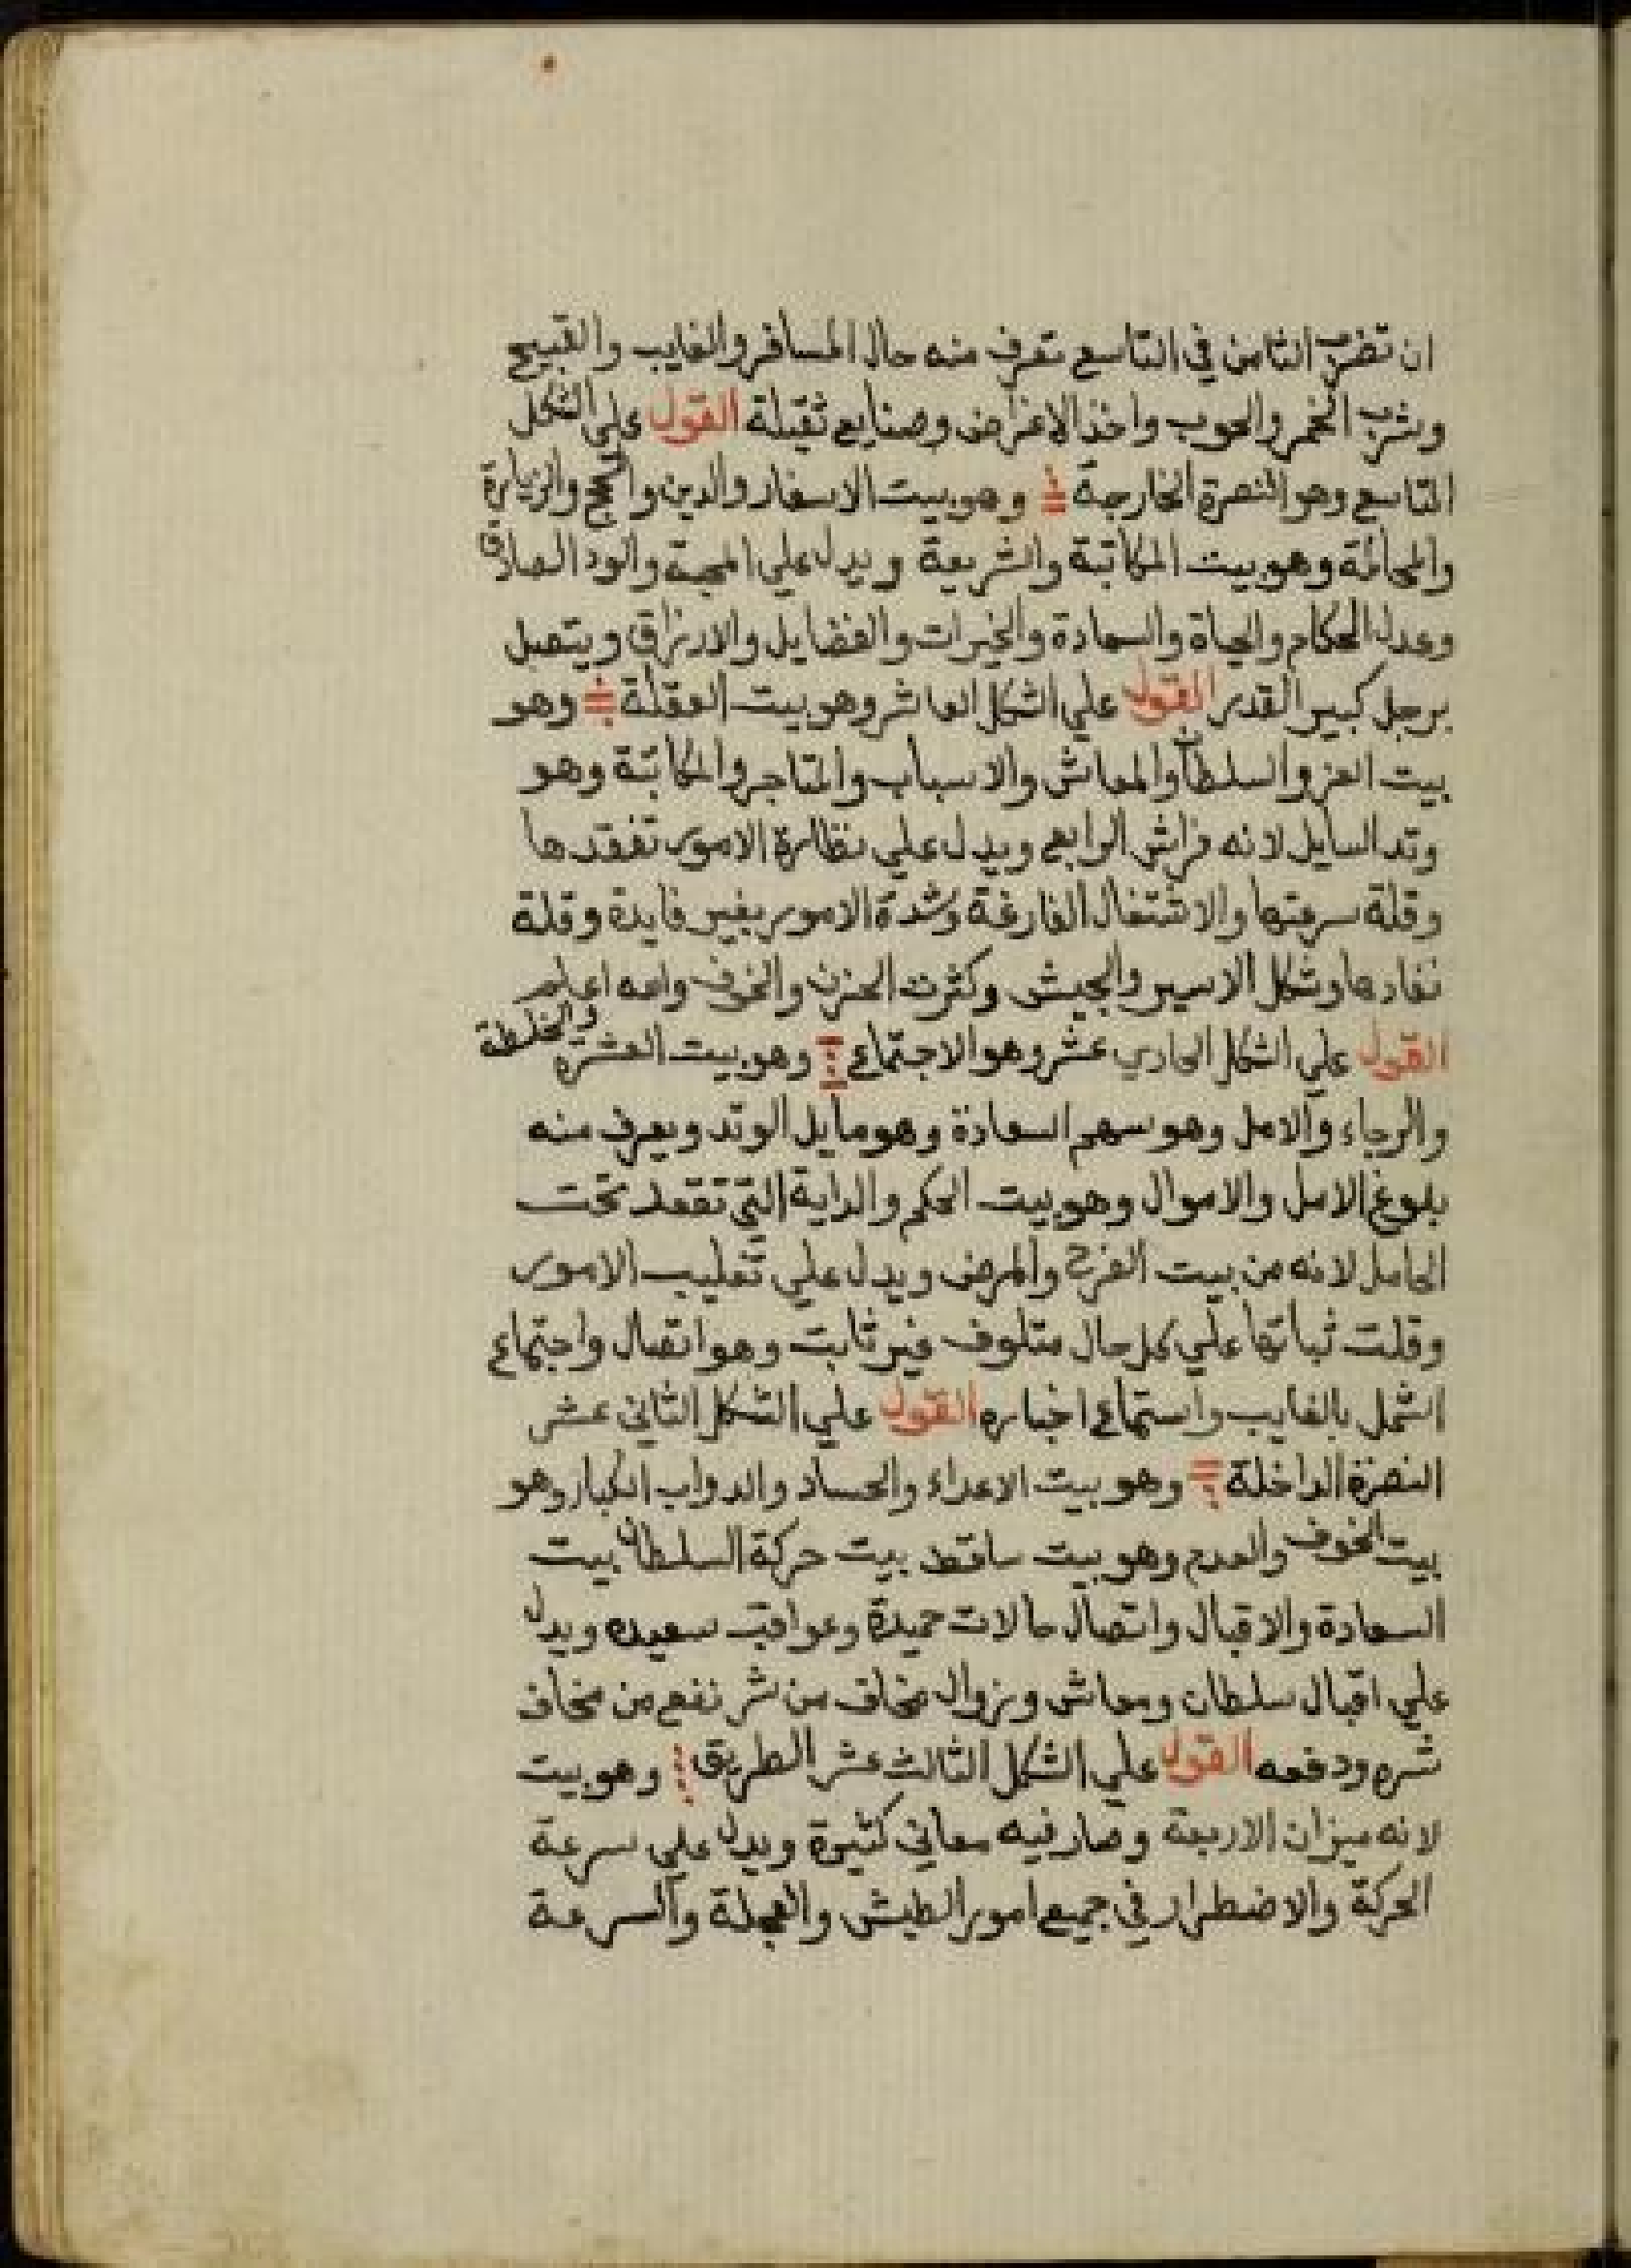 ان تضرب الثامن في التاسع تعرف منه حال المسافر والغايب والقبيح
وشرب الخمر والحوب واخذ الاغراض وصنايع ثقيلة القول علي الشكل
التاسع وهو النصرة الخارجة وهو بيت الاسفار والدين والحج والزيارة
وهو بيت المكاتبة والشريعة ويدل علي المحبة والود الصادق
وعدل الحكام والحياة والسعادة والخيرات والفضايل والارزاق ويتصل
برجل كبير القدر القول علي الشكل العاشر وهو بيت العقلة وهو
بيت العز والسلطان والمعاش والاسباب والمتاجر والمكاتبة وهو
وتد السايل لانه فراش الرابع ويدل علي نظارة الامور تفقدها
وقلة سرعتها والاشتغال الفارغة وشدة الامور بغير فايدة وقلة
نفادها وشكل الاسير والجيش وكثرت الحزن والخوف والله اعلم
القول علي الشكل الحادي عشر وهو الاجتماع وهو بيت العشره والخلطة
والرجاء والامل وهو سهم السعادة وهو مايل الوتد ويعرف منه
بلوغ الامل والاموال وهو بيت الحكم والراية التي تقعد تحت
الحامل لانه من بيت الفرح والمرض ويدل علي تقليب الامور
وقلت ثباتها علي كل حال متلوف غير ثابت وهو اتصال واجتماع
الشمل بالغايب واستماع اخباره القول علي الشكل الثاني عشر
النصرة الداخلة وهو بيت الاعداء والحساد والدواب الكبار وهو
بيت الخوف والعدم وهو بيت ساقط بيت حركة السلطان بيت
السعادة والاقبال واتصال حالات حميدة وعواقب سعيده ويدل
علي اقبال سلطان ومعاش وزوال مخاف من شر نفع من مخاف
شره ودفعه القول علي الشكل الثالث عشر الطريق وهو بيت
لانه ميزان الاربعة وصار فيه معاني كثيرة ويدل علي سرعة
الحركة والاضطرار في جميع امور الطيش والعجلة والسرعة